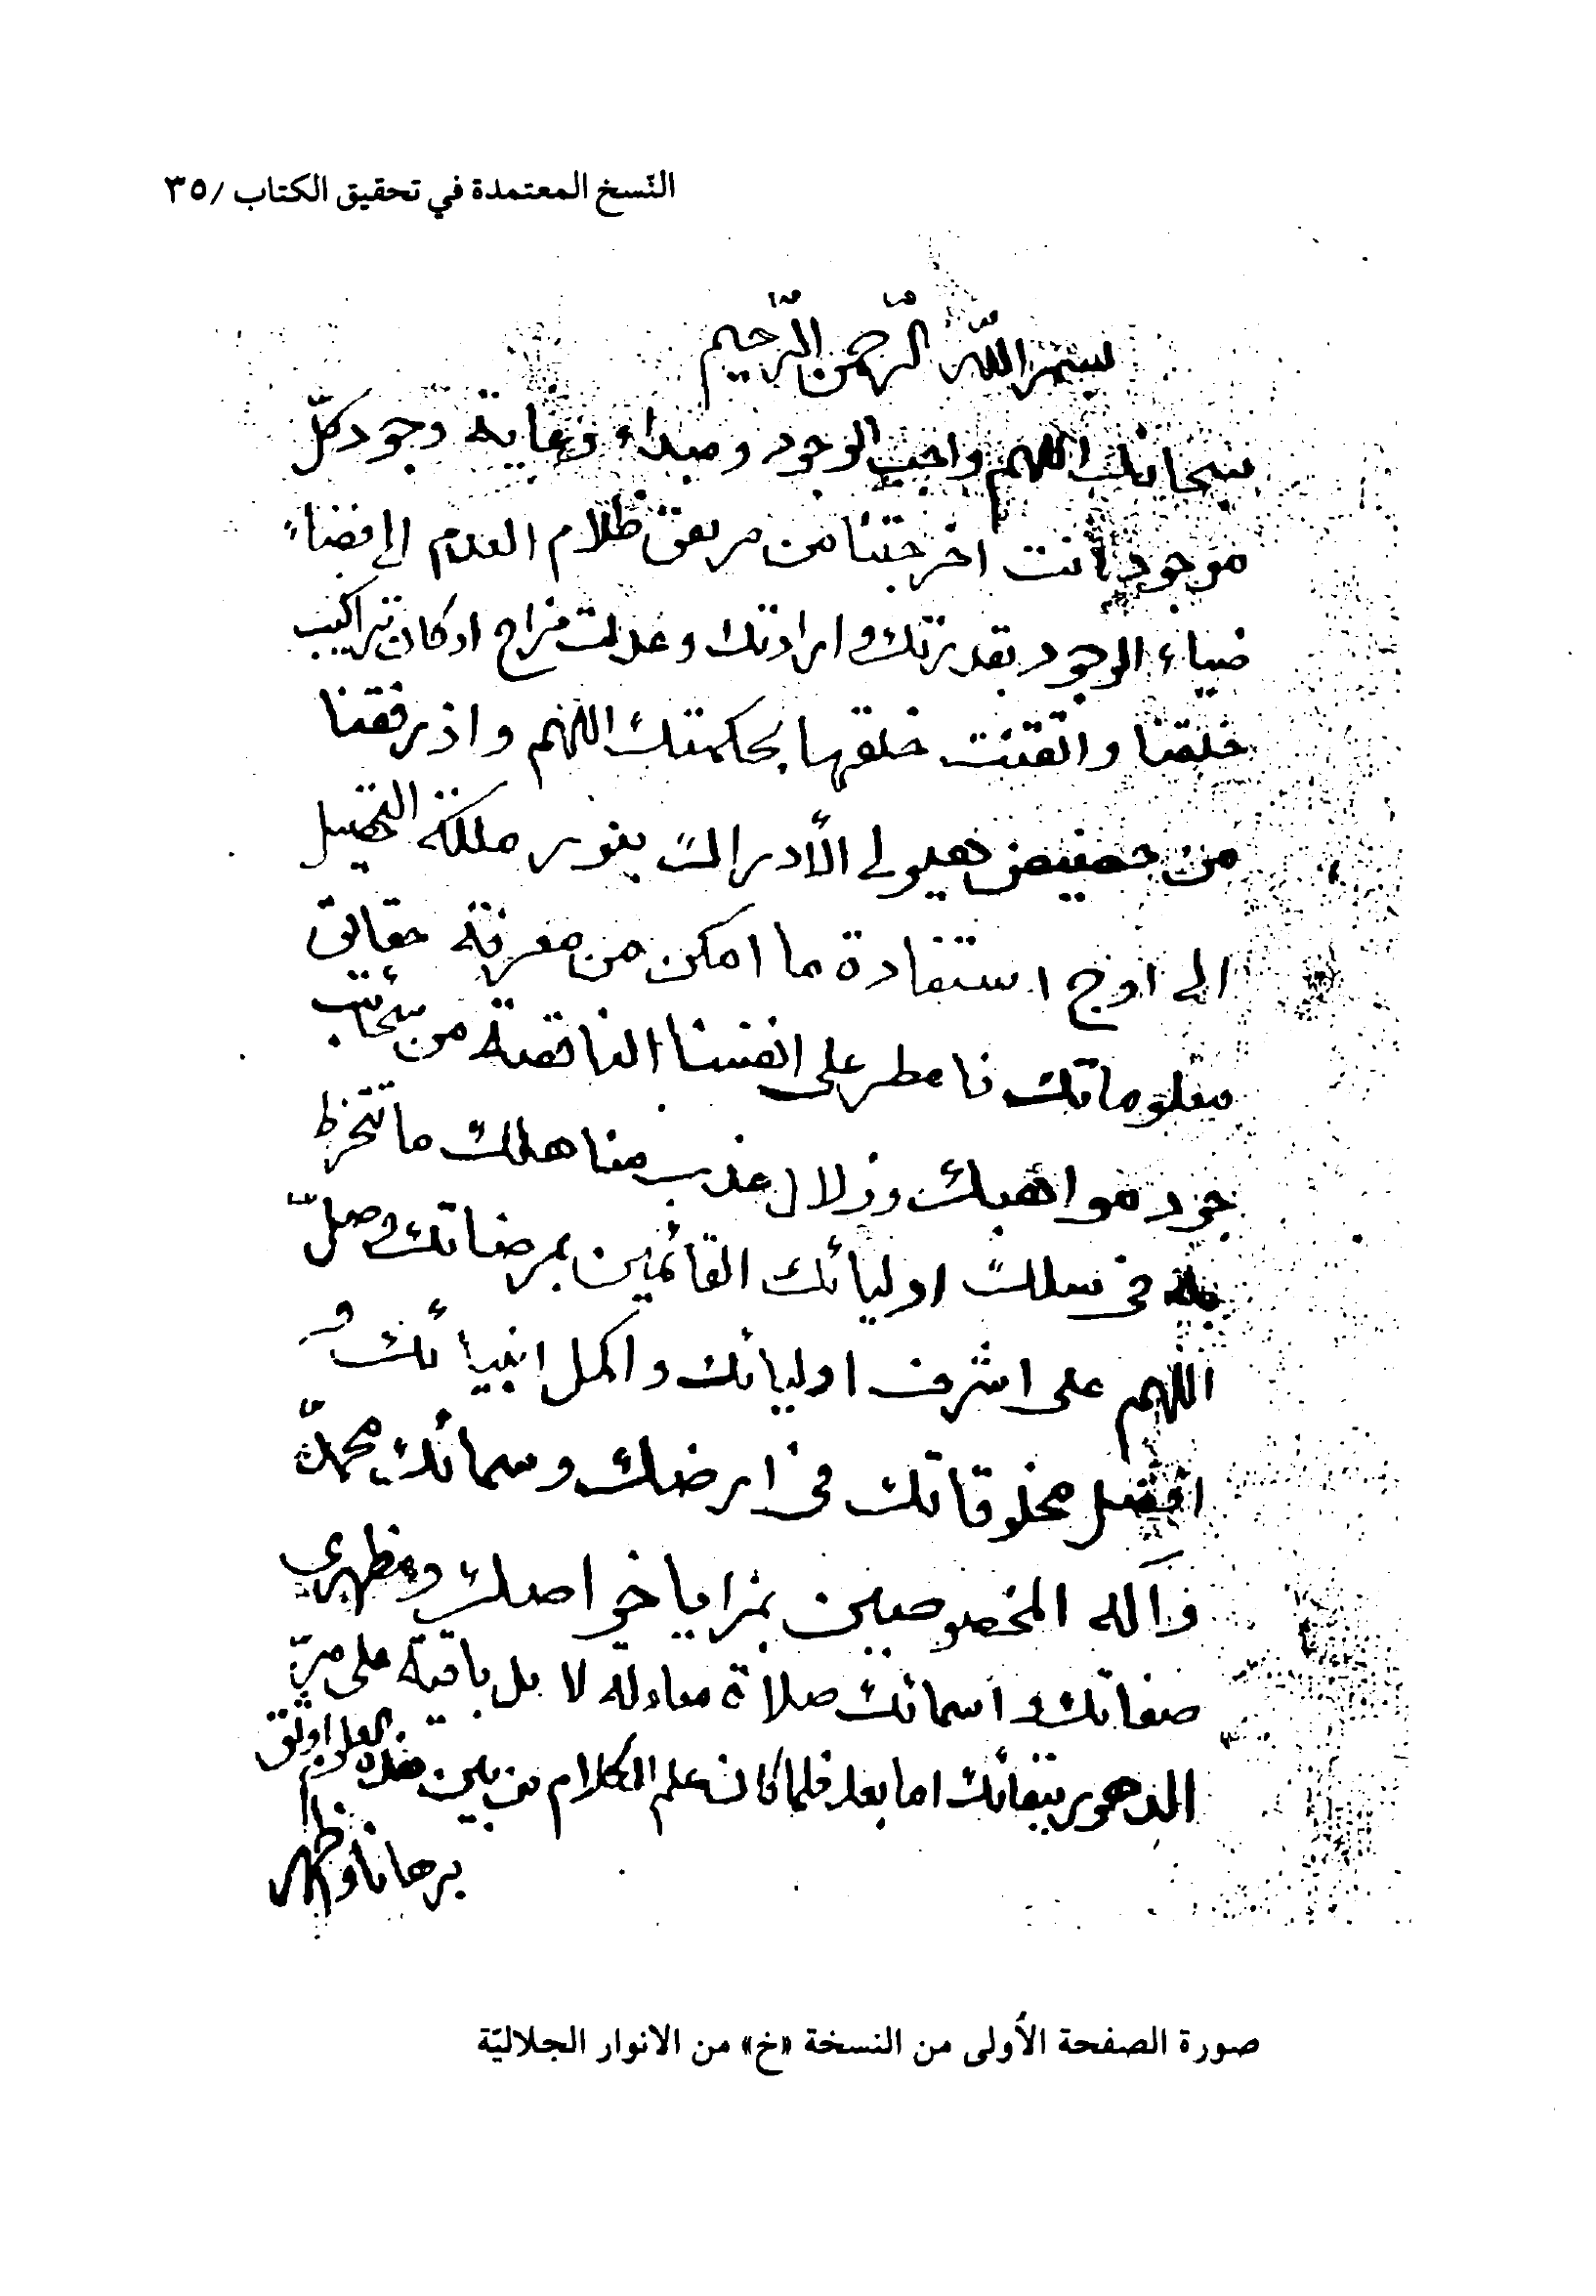 النّسخ المعتمدة في تحقيق الكتاب /٣٥
بسم اللّه الرّحمن الرّحيم
سبحانك اللهم واجب الوجود ومبداء وغاية وجود كلّ
موجود انت اخرجتنا من مريق ظلام العدم الى فضاء
ضياء الوجود بقدرتك وارادتك وعدلت مزاج اركان تراكيب
خلقنا واتقنت خلقها بحكمتك اللهم واذ رفقتنا
من حضيض هيولى الأدراك بنور ملكة التحصيل
الى اوج استفادة ما امكن من معرفة حقايق
معلوماتك فامطر على انفسنا الناقصة من سحائب
جود مواهبك وزلال عذب مناهلك ما تنخرط
به في سلك اوليائك القائمين بمرضاتك وصلّ
اللهم على اشرف اوليائك واكمل انبيائك و
افضل مخلوقاتك في ارضك وسمائك محمدّ
وآله المخصوصين بمزايا خواصك ومظهري
صفاتك واسمائك صلاة معادلة لا بل باقية على مرّ
الدهور ببقائك اما بعد فلما كان علم الكلام من بين هذه العلوم اوثق
برهانا واظهر
صورة الصفحة الأولى من النسخة «خ» من الانوار الجلاليّة